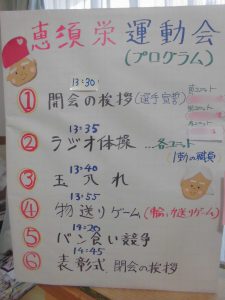 恵須栄 運動会
(プログラム)
13:30
① 開会の挨拶(選手宣誓)
13:35
② ラジオ体操 …各ユニット
1名の職員
13:40
③ 玉入れ
13:55
④ 物送りゲーム(輪っか送りゲーム)
14:20
⑤ パン食い競争
14:45
⑥ 表彰式 閉会の挨拶